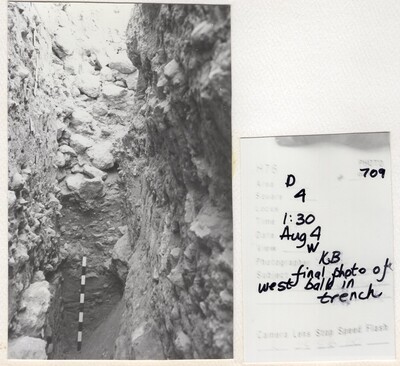 HTS PHOTO
709
Area D
Square 4
Locus
Time 1:30
Date Aug 4
View W
Photographer KB
Subject final photo of
west balk in
trench
Camera Lens Stop Speed Flash